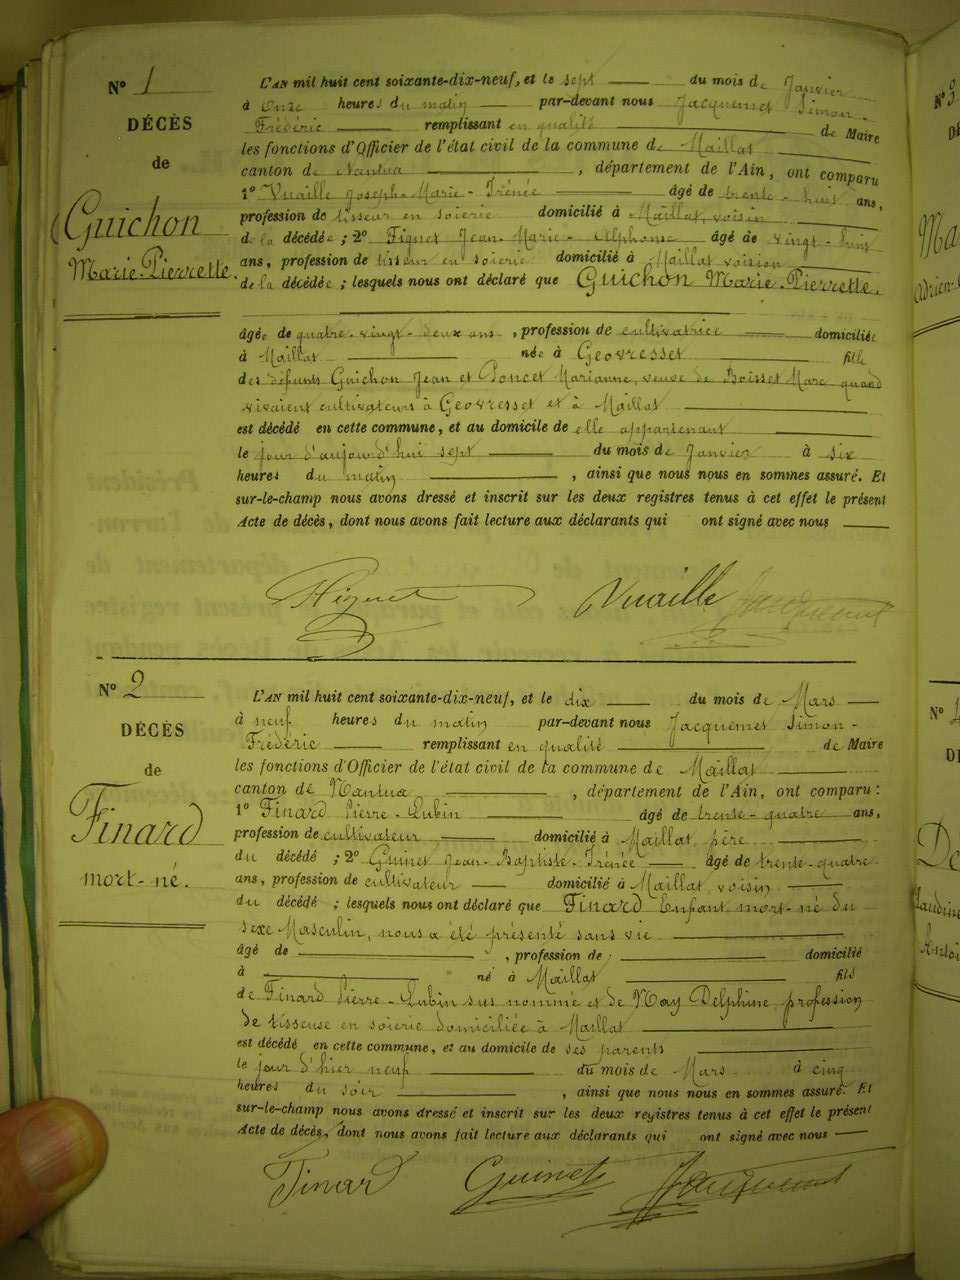 N° 1
DÉCÈS
de
Guichon
Marie-Pierrette.
L'AN mil huit cent soixante-dix-neuf, et le sept du mois de Janvier
à Onze heures du matin par-devant nous Jacquemet Simon-
Frédéric remplissant en qualité de Maire
les fonctions d'Officier de l'état civil de la commune de Maillat
canton de Nantua, département de l'Ain, ont comparu
1° Vuaille Joseph-Marie-Irénée âgé de trente-huit ans,
profession de tisseur en soierie domicilié à Maillat, voisin
de la décédée; 2° Figuet Jean-Marie-Alphonse âgé de vingt-huit
ans, profession de tisseur en soierie domicilié à Maillat voision
de la décédée; lesquels nous ont déclaré que Guichon Marie-Pierrette.
âgée de quatre-vingt-deux ans, profession de cultivatrice domiciliée
à Maillat née à Géovresset fille
des défunts Guichon Jean et Poncet Marianne, veuve de Boisset Marc quand
vivaient cultivateurs à Géovresset et à Maillat
est décédé en cette commune, et au domicile de elle appartenant
le jour d'aujourd'hui sept du mois de Janvier à six
heures du matin, ainsi que nous nous en sommes assuré. Et
sur-le-champ nous avons dressé et inscrit sur les deux registres tenus à cet effet le présent
Acte de décès, dont nous avons fait lecture aux déclarants qui ont signé avec nous
Figuet Vuaille Jacquemet
N° 2
DÉCÈS
de
Finard
mort-né.
L'AN mil huit cent soixante-dix-neuf, et le dix du mois de Mars
à neuf heures du matin par-devant nous Jacquemet Simon-
Frédéric remplissant en qualité de Maire
les fonctions d'Officier de l'état civil de la commune de Maillat
canton de Nantua, département de l'Ain, ont comparu:
1° Finard Pierre-Lubin âgé de trente-quatre ans,
profession de cultivateur domicilié à Maillat, père
du décédé; 2° Guinet Jean-Baptiste-Irénée âgé de trente-quatre
ans, profession de cultivateur domicilié à Maillat, voisin
du décédé; lesquels nous ont déclaré que Finard Enfant mort-né du
sexe Masculin, nous a été présenté sans vie
âgé de, profession de domicilié
à né à Maillat fils
de Finard Pierre-Lubin sus nommé et de May Delphine, profession
de tisseuse en soierie domiciliée à Maillat
est décédé en cette commune, et au domicile de ses parents
le jour d'hier neuf du mois de Mars à cinq
heures du soir, ainsi que nous nous en sommes assuré. Et
sur-le-champ nous avons dressé et inscrit sur les deux registres tenus à cet effet le présent
Acte de décès, dont nous avons fait lecture aux déclarants qui ont signé avec nous
Finard Guinet Jacquemet